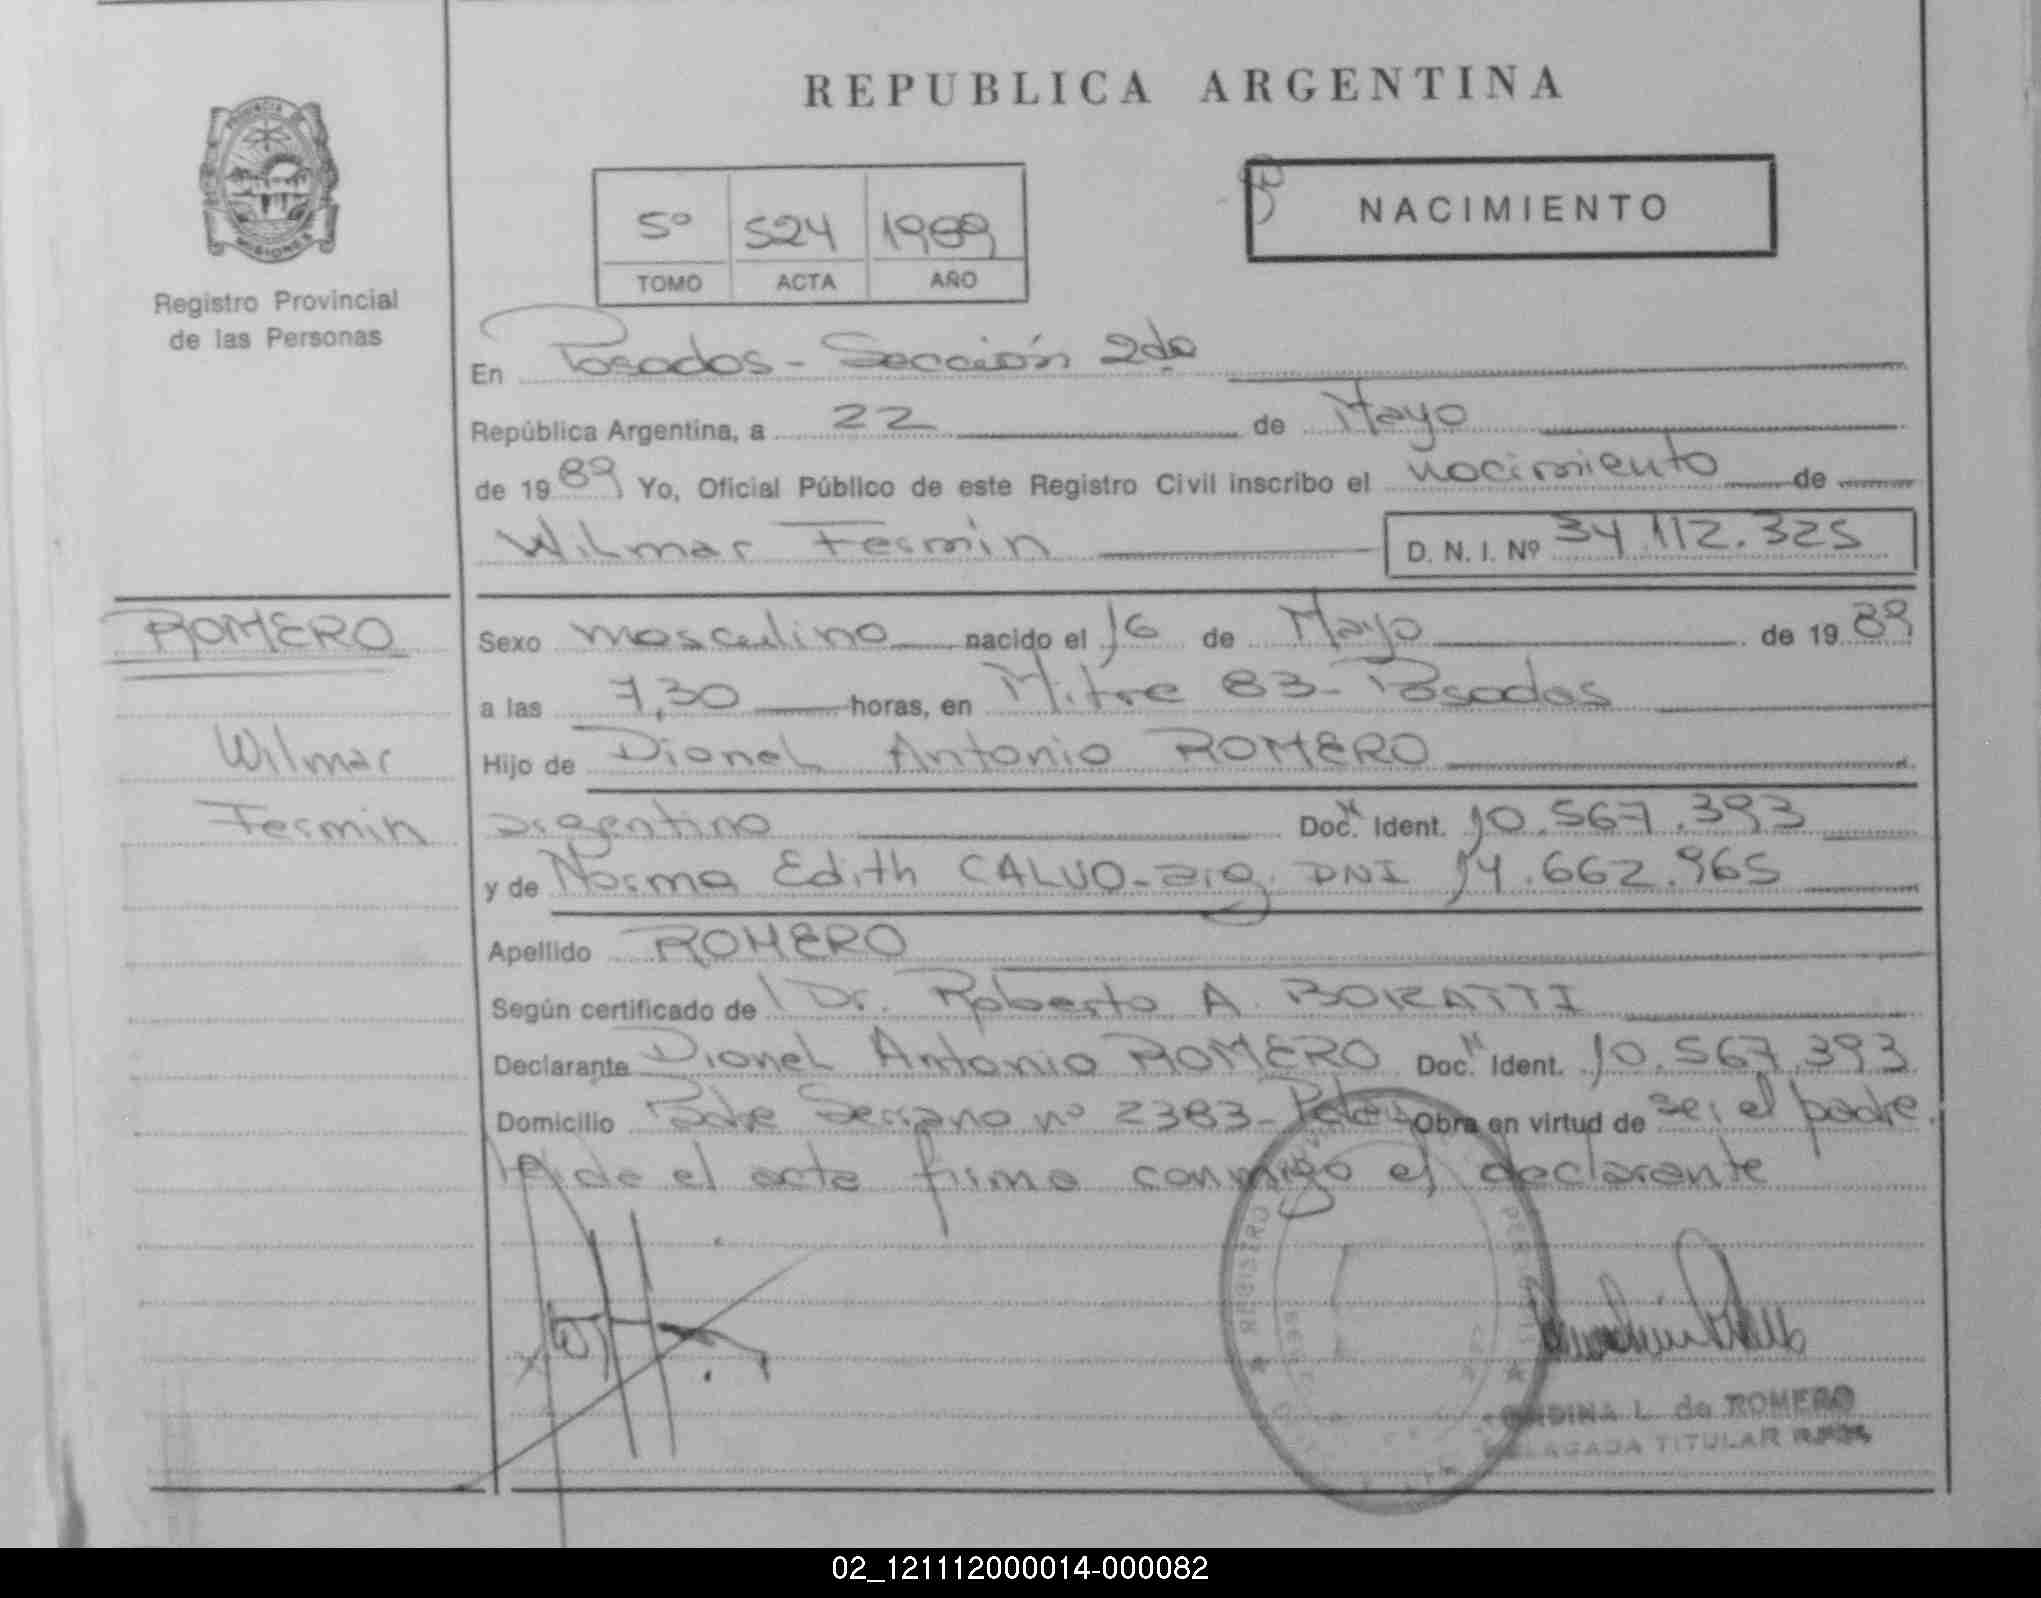 REPUBLICA ARGENTINA
PROVINCIA
MISIONES
Registro Provincial
de las Personas
NACIMIENTO
5º 524 1989
TOMO ACTA AÑO
En Posadas - Sección 2da
República Argentina, a 22 de Mayo
de 1989 Yo, Oficial Público de este Registro Civil inscribo el nacimiento de
Wilmar Fermin D. N. I. Nº 34.112.325
ROMERO
Wilmar
Fermin
Sexo masculino nacido el 16 de Mayo de 1989
a las 7,30 horas, en Mitre 83 - Posadas
Hijo de Dionel Antonio ROMERO
argentino Doc. Ident. 10.567.393
y de Norma Edith CALVO - arg. DNI 14.662.965
Apellido ROMERO
Según certificado de Dr. Roberto A. BORATTI
Declarante Dionel Antonio ROMERO Doc. Ident. 10.567.393
Domicilio Pbte Serrano nº 2383 - Obra en virtud de ser el padre.
Leida el acta firma conmigo el declarante
REGISTRO
L. de ROMERO
TITULAR
02_121112000014-000082